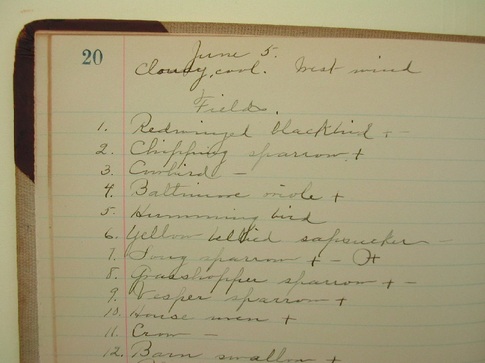 20
June 5.
Cloudy, cool. West wind
Fields.
1. Redwinged blackbird + -
2. Chipping sparrow +
3. Cowbird -
4. Baltimore oriole +
5. Humming bird
6. Yellow bellied sapsucker -
7. Song sparrow + - O+
8. Grasshopper sparrow + -
9. Vesper sparrow +
10. House wren +
11. Crow -
12. Barn swallow +